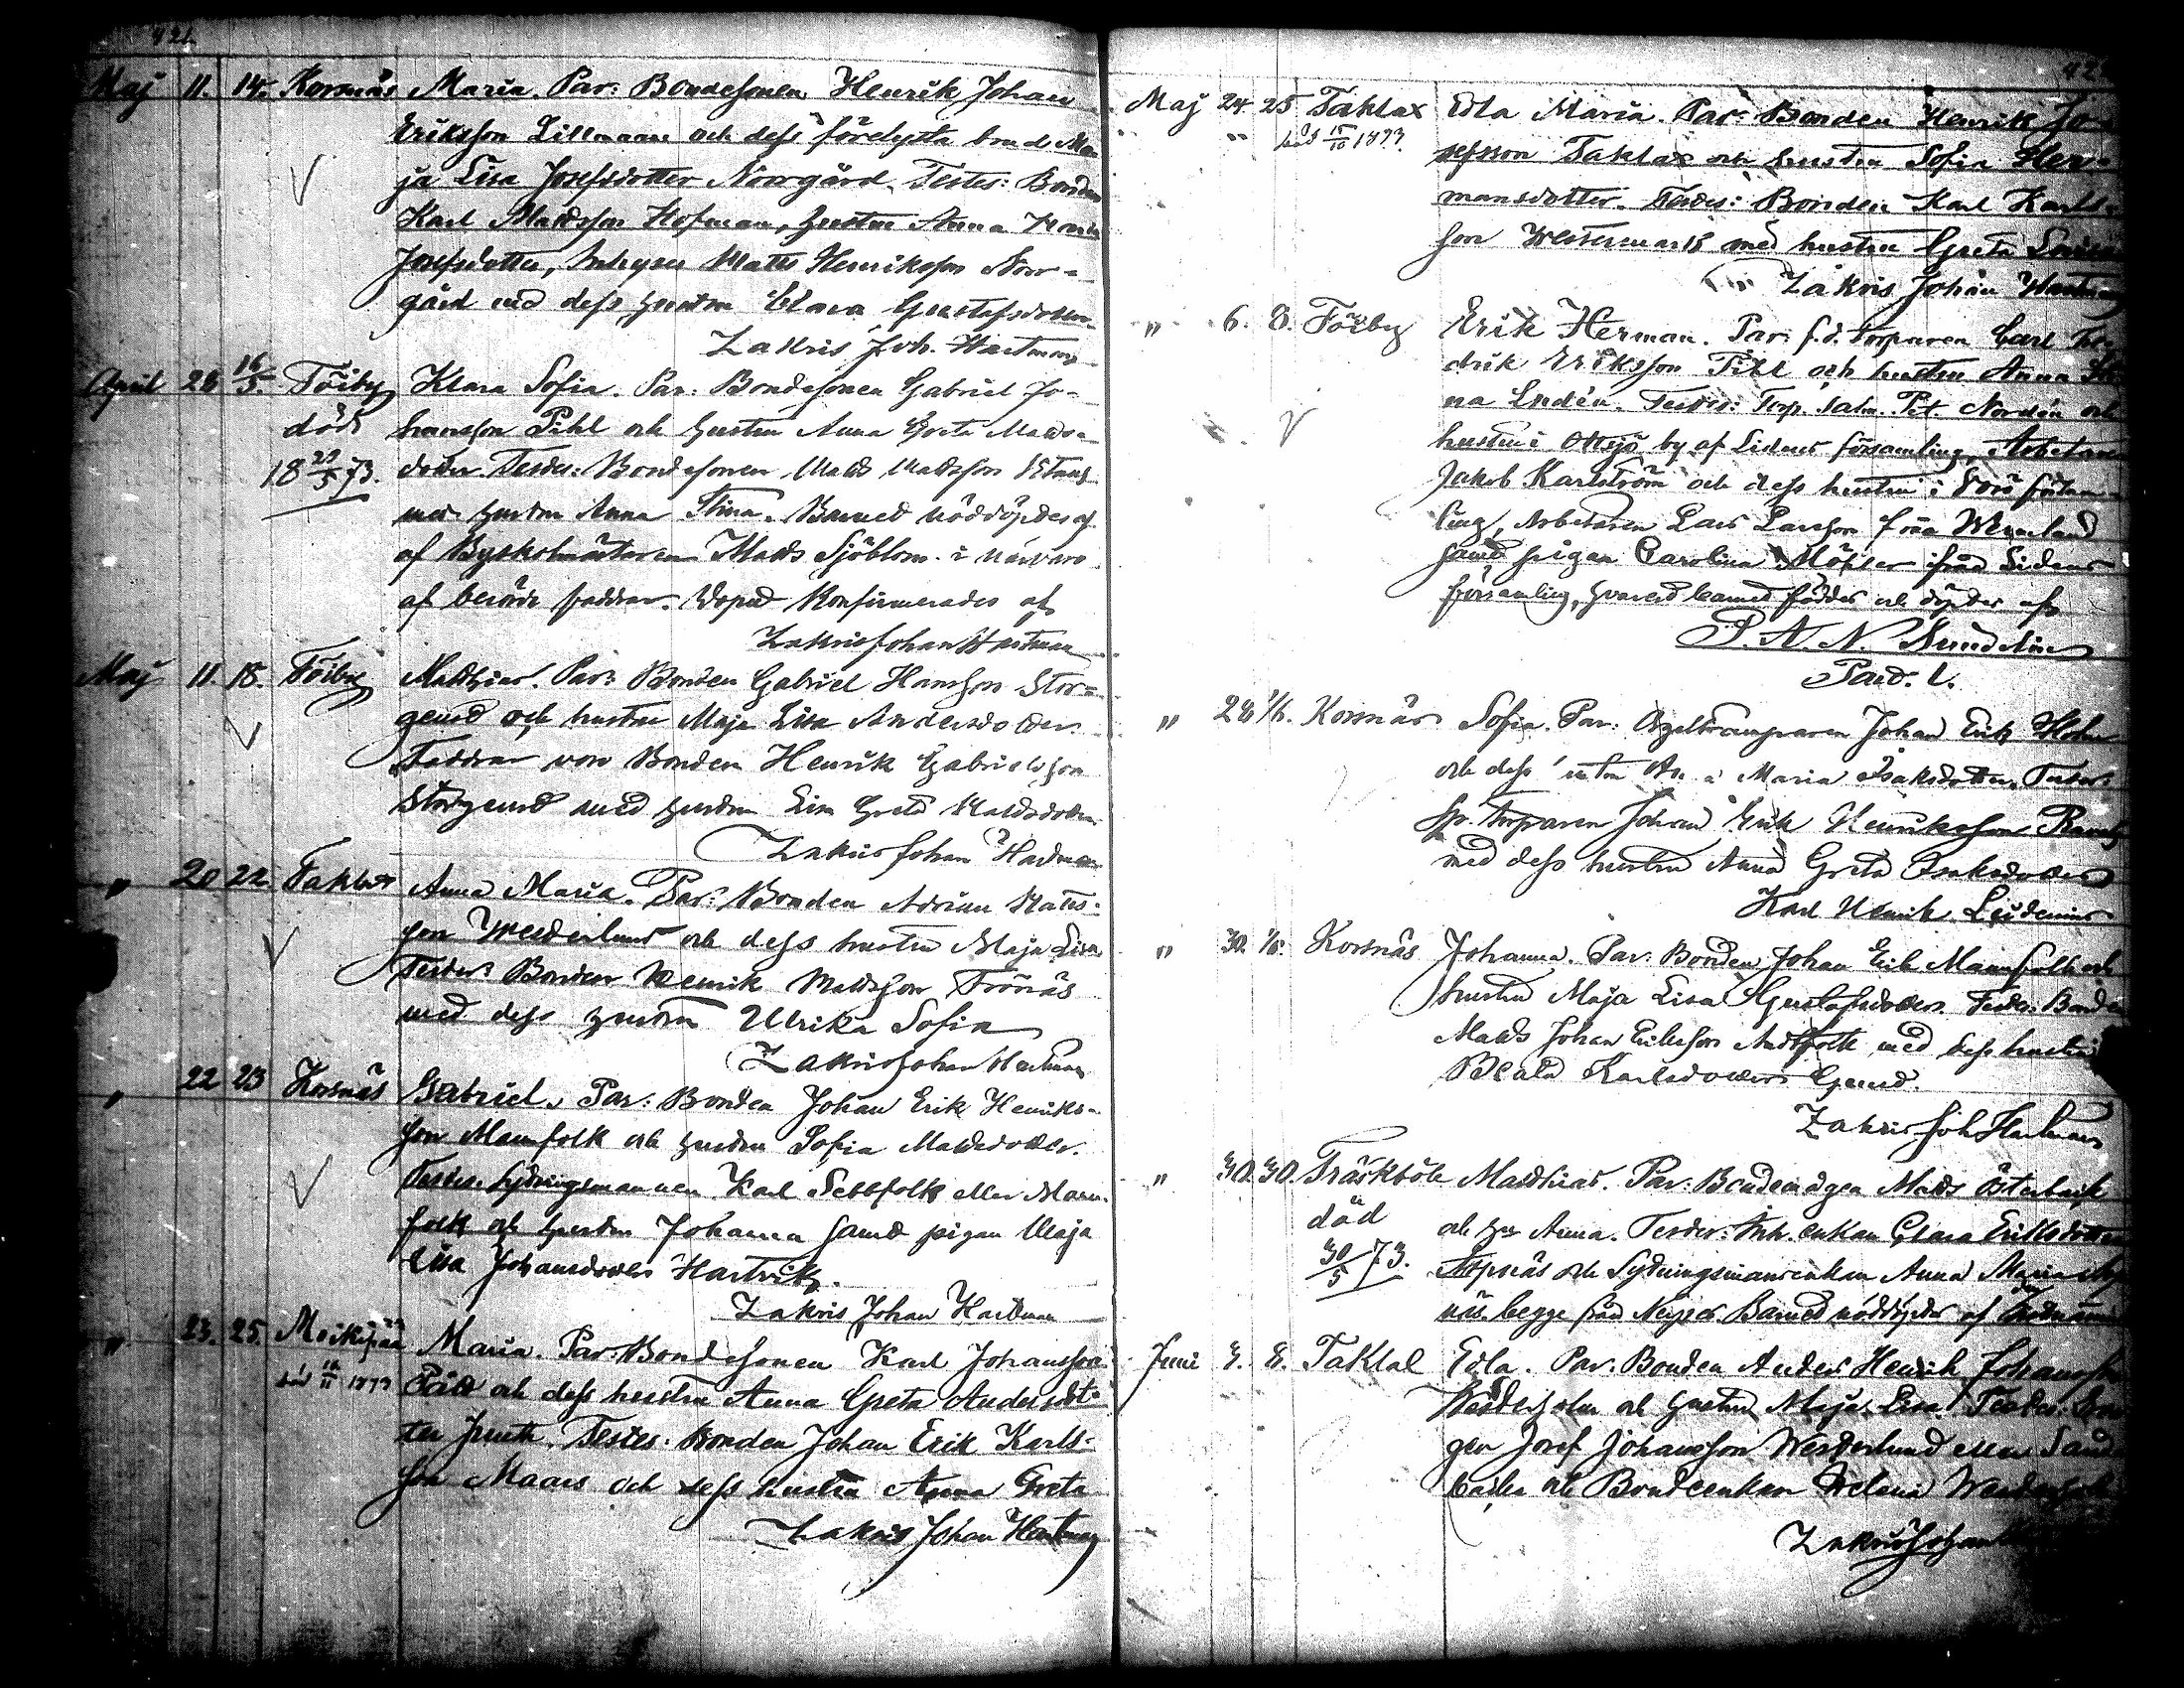 Maj 11. 14. Korsnäs Maria. Par: Bondesonen Henrik Johan
Eriksson Lillmaars och dess förelysta brud Ma
ja Lisa Josefsdotter Norrgård. Testes: Bonden
Karl Mattsson Hofman, hustrun Anna Maria
Josefsdotter, Inhyses Matts Henriksson Norr-
gård med dess hustru Clara Gustafsdotter
Zakris Joh. Hartman
April 26 16/5. Töjby Klara Sofia. Par: Bondesonen Gabriel Jo-
död hansson Pihl och hustrun Anna Greta Matts-
18 23/5 73. dotter. Testes: Bondesonen Matts Mattsson
med hustrun Anna Stina. Barnet nöddöptes af
af Byskolmästaren Matts Sjöblom i närvaro
af berörde faddrar. Dopet konfirmerades af
Zakris Johan Hartman
Maj 11. 18. Töjby Matthias. Par: Bonden Gabriel Hansson Stor-
gerud och hustru Maja Lisa Andersdotter.
Faddrar voro Bonden Henrik Gabrielsson
Storgerud med hustrun Lisa Greta Mattsdotter
Zakris Johan Hartman
" 20 22 Taklax Anna Maria. Par: Bonden Adrian Matts-
son Westerlund och dess hustru Maja Lisa
Testes: Bonden Henrik Mattsson Trönäs
med dess hustru Ulrika Sofia
Zakris Johan Hartman
" 22 23 Korsnäs Gabriel. Par: Bonden Johan Erik Henriks-
son Mannfolk och hustrun Sofia Mattsdotter.
Testes: Sytningsmannen Karl Sebbfolk eller Mann-
folk och hustrun Johanna samt pigan Maja
Lisa Johansdotter Hartvik.
Zakris Johan Hartman
" 23. 25. Moikipää Maria. Par: Bondesonen Karl Johansson
1873 och dess hustru Anna Greta Andersdot-
ter Testes: Bonden Johan Erik Karls-
son Maars och dess hustru Anna Greta
Zakris Johan Hartman
Maj 24 25 Taklax Edla Maria. Par: Bonden Henrik Jo-
död 15/10 1873. sefsson Taklax och hustrun Sofia Her-
mansdotter. Testes: Bonden Karl Karls-
son Westermark med hustru Greta Lovisa
Zakris Johan Hartman
" 6. 8. Töjby Erik Herman. Par: f.d. Torparen Carl Fre-
drik Eriksson Pihl och hustru Anna
na Lindén. Testes: Torp. Sahn. Pet. Nordin och
hustru i Ottsjö by af Lidens församling, Arbetaren
Jakob Karlström och dess hustru i församling
ling, Arbetaren Lars Larsson från Wermland
samt pigan Carolina från Lidens
församling, hvarest barnet föddes och döptes af
P. A. N. Sundelin
" 28 1/6. Korsnäs Sofia. Par: Orgeltramparen Johan Erik Holm
och dess Maria Isaksdotter. Testes:
torparen Johan Erik Henriksson
med dess hustru Anna Greta Isaksdotter
Karl Henrik Lindenius
" 30. 1/6. Korsnäs Johanna. Par: Bonden Johan Erik Mannfolk och
hustru Maja Lisa Gustafsdotter. Testes: Bonden
Matts Johan Eriksson med dess hustru
Beata Karlsdotter Gerud.
Zakris Joh Hartman
" 30. 30. Träskböle Matthias. Par: Bondemågen Matts Österback
död och hu Anna. Testes: Inh. enkan Clara Eriksdotter
30/5 73. Aspnäs och Sytningsmansenkan Anna Maria
näs begge från Nerpes. Barnet nöddöptes af
Juni 3. 8. Taklax Edla. Par: Bonden Anders Henrik Johansson
Westerholm och hustrun Maja Lisa. Testes:
gen Josef Johansson Westerlund eller Sand-
backa och Bondeenkan Helena
Zakris Johan